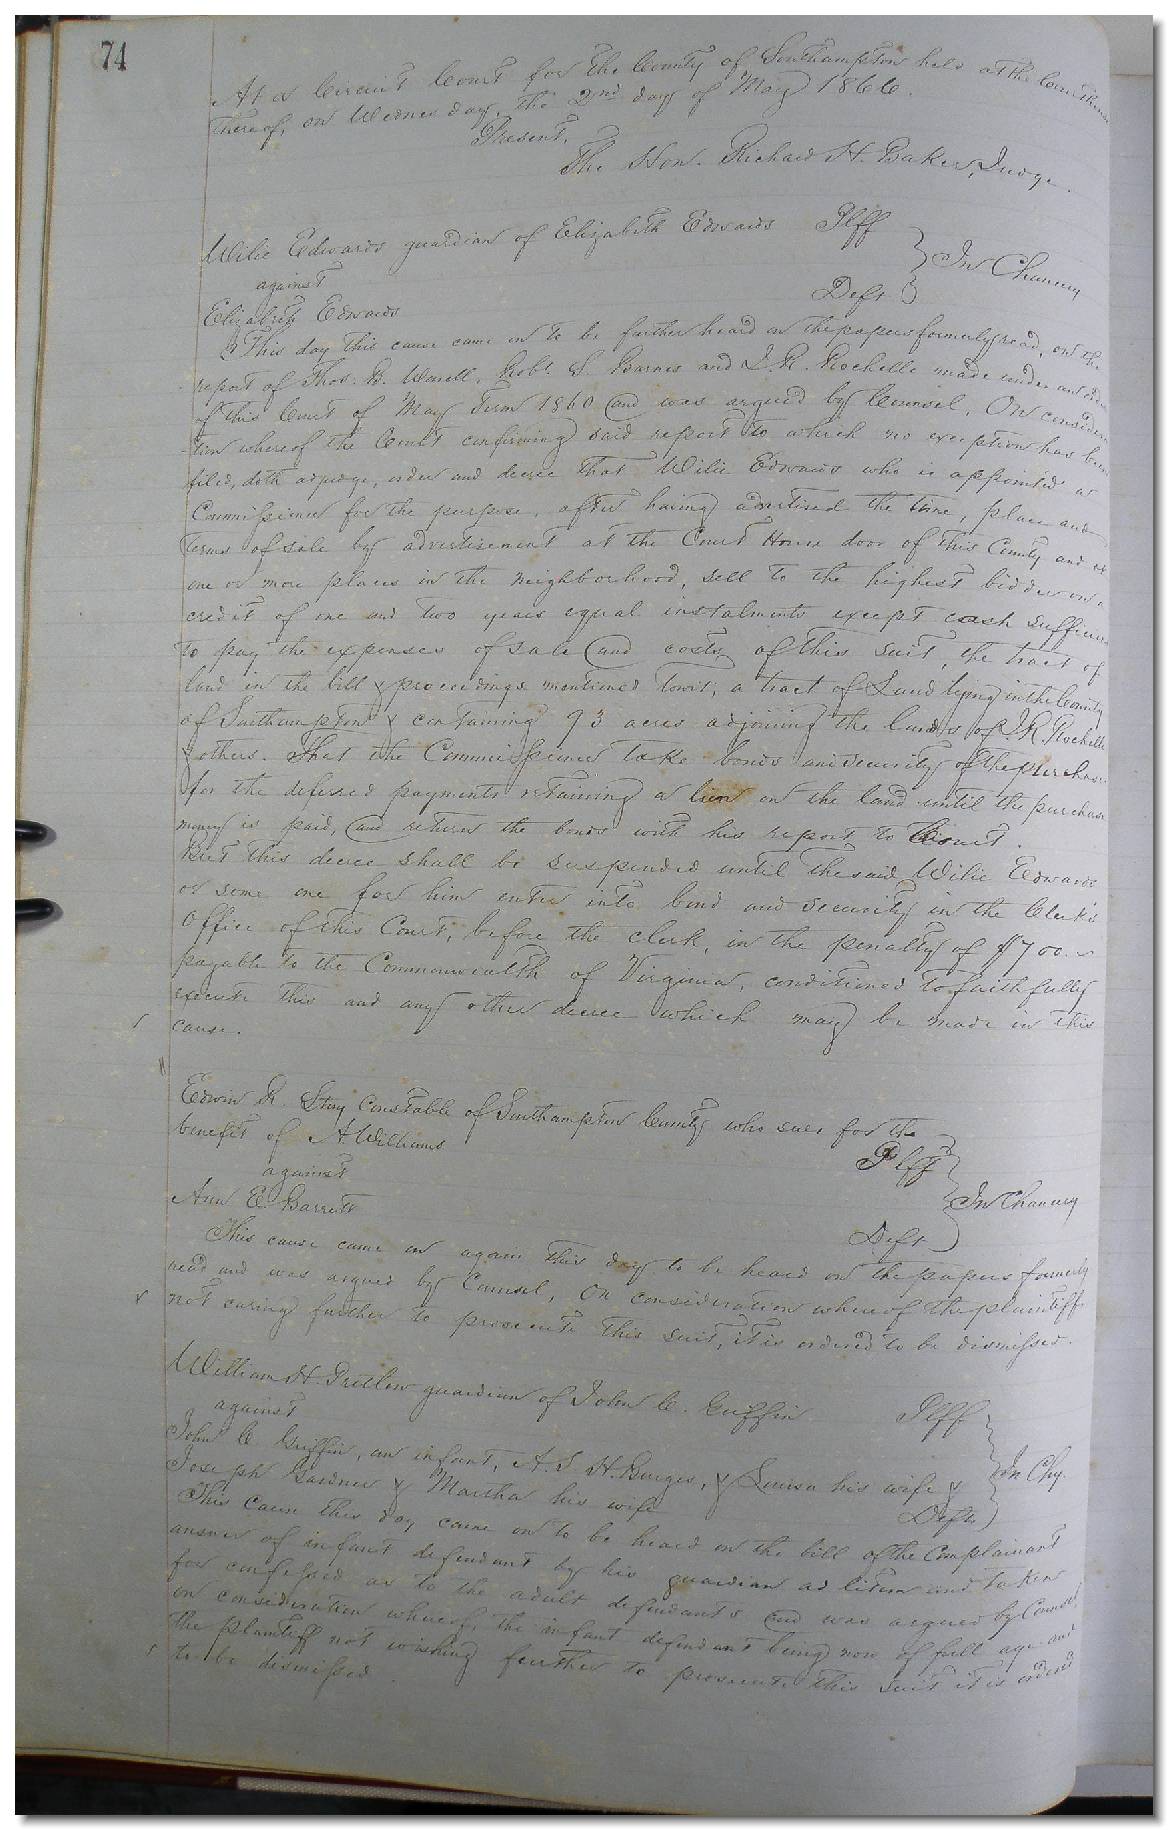 74
At a Circuit Court for the County of Southampton held at the Court House
thereof, on Wednesday, the 2nd day of May 1866.
Present,
The Hon. Richard H. Baker, Judge.
Wilie Edwards guardian of Elizabeth Edwards Plff
against
In Chancery
Elizabeth Edwards Deft
This day this cause came on to be further heard on the papers formerly read, on the
report of Thos. B. Worrell, Robt. S. Barnes and J. R. Rochelle made under an order
of this Court of May Term 1860 and was argued by Counsel. On considera
tion whereof the Court confirming said report to which no exception has been
filed, doth adjudge, order and decree that Wilie Edwards who is appointed a
Commissioner for the purpose, after having advertised the time, place and
terms of sale by advertisement at the Court House door of this County and at
one or more places in the neighborhood, sell to the highest bidder on a
credit of one and two years equal instalments except cash sufficient
to pay the expenses of sale and costs of this suit, the tract of
land in the bill & proceedings mentioned towit; a tract of Land lying in the County
of Southampton & containing 93 acres adjoining the lands of J. R. Rochelle
& others. That the Commissioner take bonds and security of the purchaser
for the defered payments retaining a lien on the land until the purchase
money is paid, and return the bonds with his report to Court.
But this decree shall be suspended until the said Wilie Edwards
or some one for him enter into bond and security in the Clerk's
Office of this Court, before the clerk, in the penalty of $700.
payable to the Commonwealth of Virginia, conditioned to faithfully
execute this and any other decree which may be made in this
cause.
Edwin R. Stay Constable of Southampton County who sues for the
benefit of A. Williams Plff
against
In Chancery
Ann E. Barrett Deft
This cause came on again this day to be heard on the papers formerly
read and was argued by Counsel, On consideration whereof the plaintiff
not caring further to prosecute this suit, it is ordered to be dismissed.
William H. Pretlow guardian of John C. Griffin Plff
against
John C. Griffin, an infant, A. S. H. Burges, & Louisa his wife & In Chy.
Joseph Gardner & Martha his wife Defts
This cause this day came on to be heard on the bill of the Complainant
answer of infant defendant by his guardian ad litem and taken
for confessed as to the adult defendants and was argued by Counsel
on consideration whereof, the infant defendant being now of full age and
the plaintiff not wishing further to prosecute this suit it is ordered
to be dismissed.